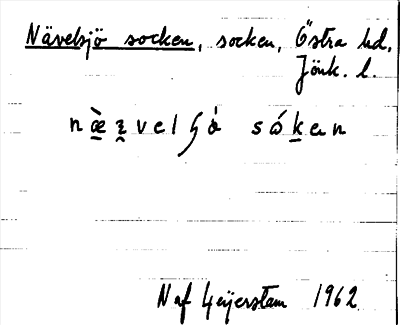 Nävelsjö socken, socken, Östra hd,
Jönk. l.
sóken
N af Geijerstam 1962